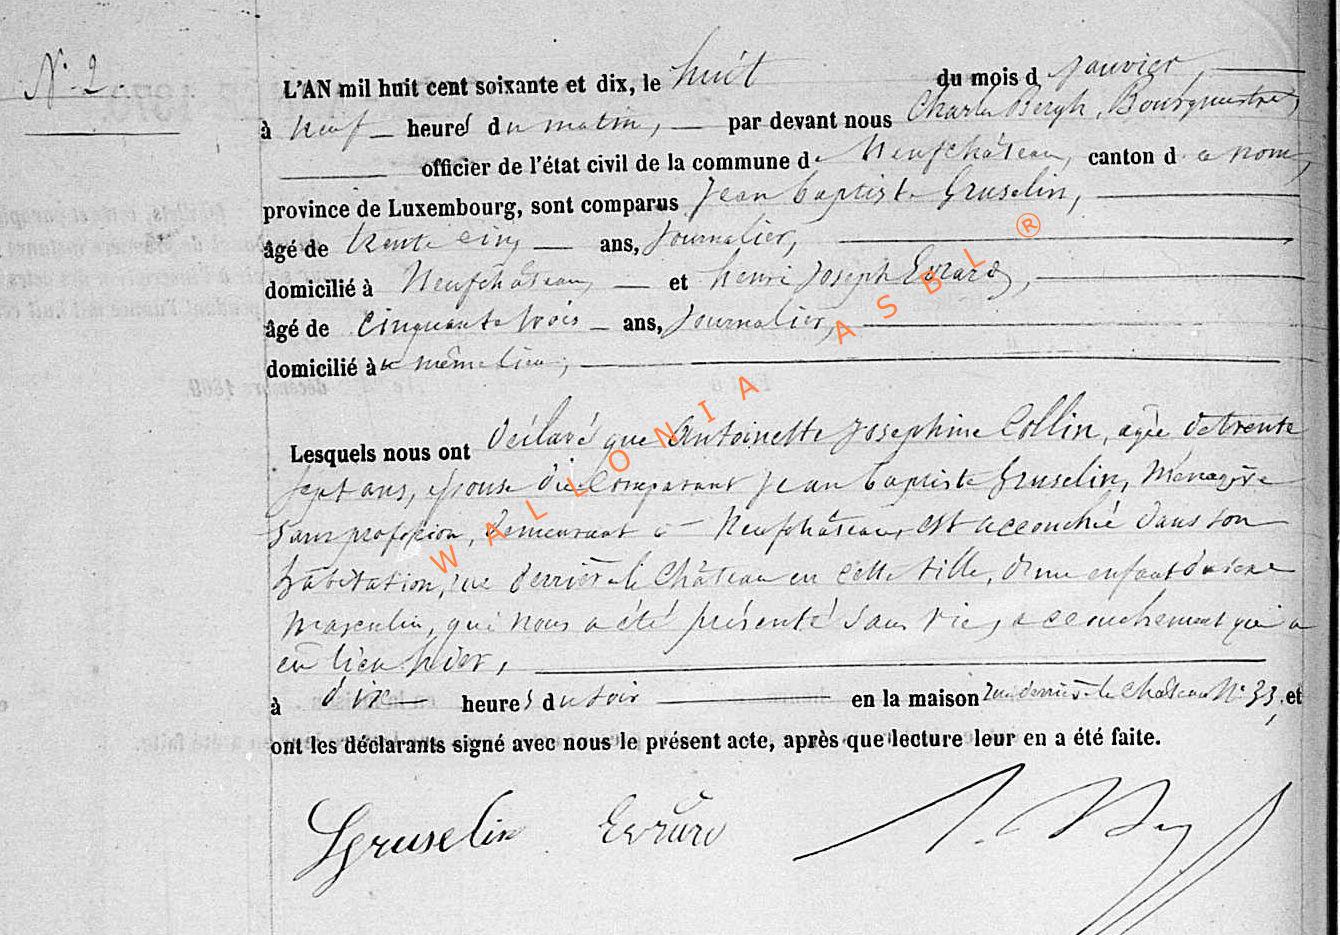 N° 2.
L'AN mil huit cent soixante et dix, le huit du mois d janvier,
à neuf heures du matin, par devant nous Charles Bergh, Bourgmestre,
officier de l'état civil de la commune de Neufchâteau, canton d ce nom,
province de Luxembourg, sont comparus Jean Baptiste Gruselin,
âgé de trente cinq ans, journalier,
domicilié à Neufchâteau, et henri Joseph Evrard,
âgé de cinquante trois ans, journalier,
domicilié à même lieu,
Lesquels nous ont déclaré que Antoinette Josephine Collin, agée de trente
sept ans, épouse du Comparant Jean Baptiste Gruselin, Ménagère
sans profession, demeurant à Neufchâteau, est accouchée dans son
habitation, rue derrière le Château en cette ville, d'une enfant du sexe
masculin, qui nous a été présenté sans vie, accouchement qui a
eu lieu hier,
à dix heures du soir en la maison rue derrière le Château N° 33, et
ont les déclarants signé avec nous le présent acte, après que lecture leur en a été faite.
Gruselin Evrard
WALLONIA ASBL ®